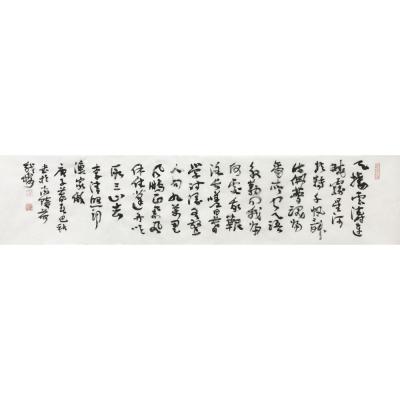 天接雲濤連
曉霧星河
欲轉千帆舞
彷彿夢魂歸
帝所聞天語
殷勤問我歸
何處我報
路長嗟日暮
學詩謾有驚
人句九萬里
風鵬正舉風
休住蓬舟吹
取三山去
李清照詞
漁家傲
庚子
書於